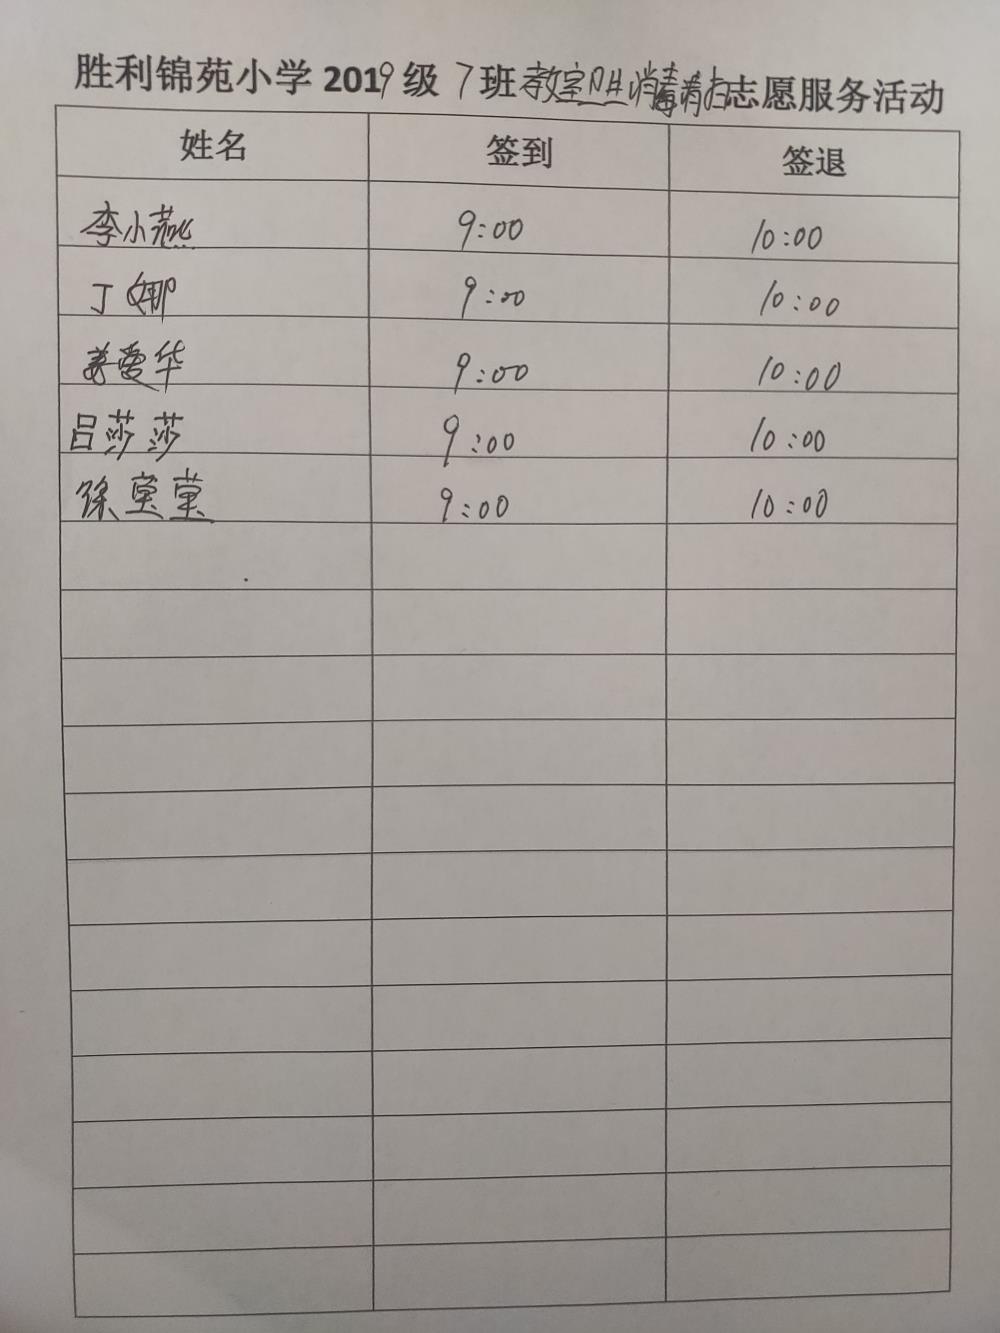 胜利锦苑小学 2019级 7班教室卫生消毒清扫志愿服务活动
姓名 签到 签退
李小燕 9:00 10:00
丁娜 9:00 10:00
姜爱华 9:00 10:00
吕莎莎 9:00 10:00
徐莹莹 9:00 10:00